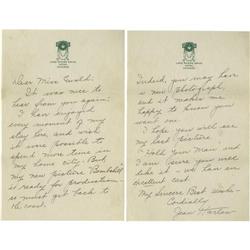 Dear Miss Ewald:
It was nice to
hear from you again.
I have enjoyed
every moment of my
stay here, and wish
it were possible to
spend more time in
my home city. But,
my new picture "Bombshell"
is ready for production -
so must get back to
the coast.
Indeed, you may have
a new photograph,
and it makes me
happy to know you
want one.
I hope you will see
my last picture
"Hold Your Man" and
I am sure you will
like it - we had an
excellent cast.
My Sincere Best Wishes -
Cordially
Jean Harlow